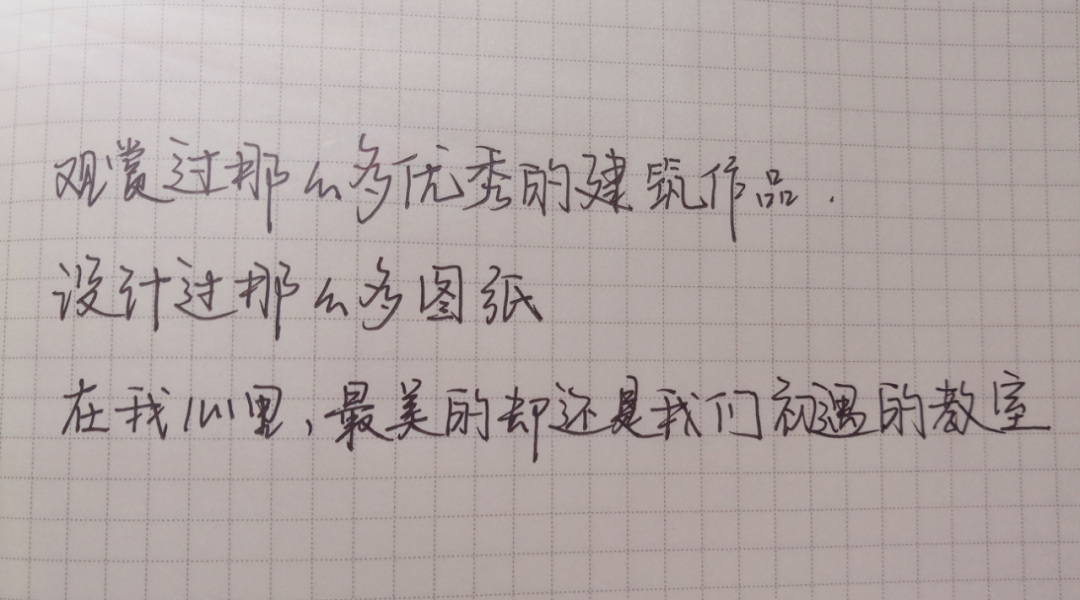 观赏过那么多优秀的建筑作品.
设计过那么多图纸
在我心里,最美的却还是我们初遇的教室